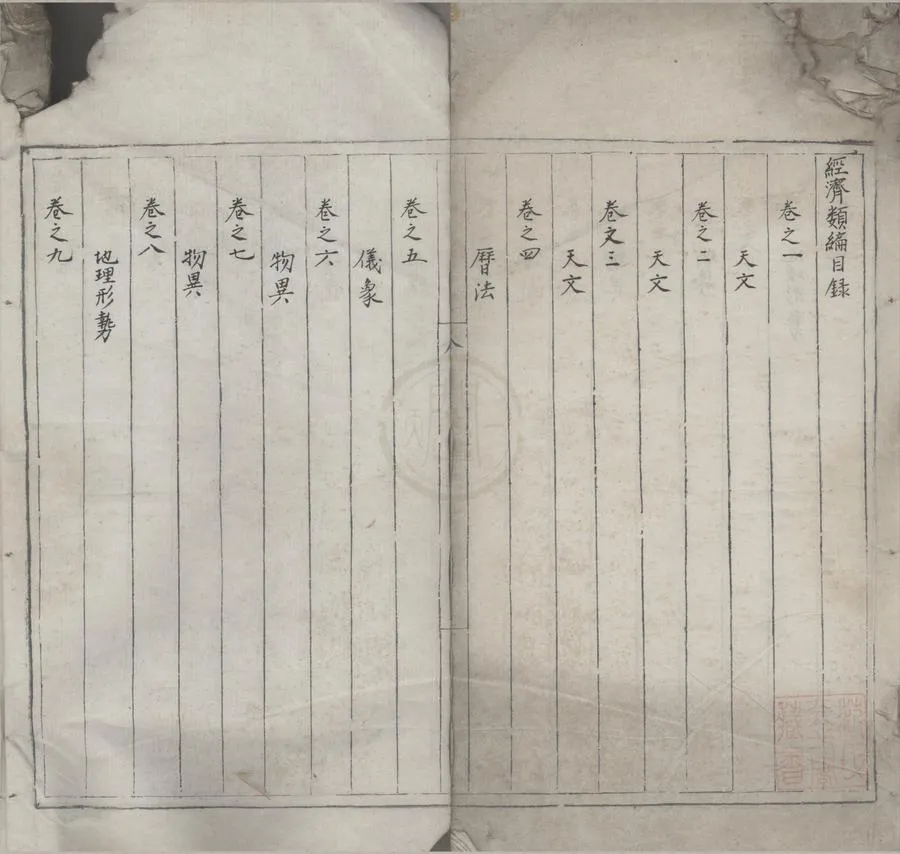 經濟類編目録
卷之一
天文
卷之二
天文
卷文三
天文
卷之四
曆法
八
卷之五
儀象
卷之六
物異
卷之七
物異
卷之八
地理形勢
卷之九